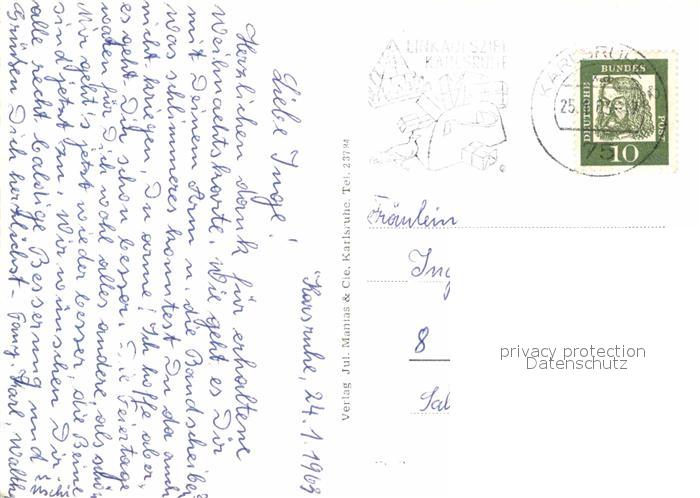 Karlsruhe, 24.1.1963
Liebe Inge!
Herzlichen dank für erhaltene
Weihnachtskarte. Wie geht es Dir
mit Deinem Arm u. die Bandscheibe?
Was schlimmeres konntest Du da auch
nicht kriegen, Du arme! Ich hoffe aber,
es geht Dir schon besser. Die Feiertage
waren für Dich wohl alles andere, als schön.
Mir geht's jetzt wieder besser, die Beine
sind jetzt dran. Wir wünschen Dir
alle recht baldige Besserung und
Grüßen Dich herzlichst - Karl, Walth
Uschi
Verlag Jul. Manias & Cie, Karlsruhe. Tel. 23794
EINKAUFSZIEL
KARLSRUHE
KARLSRUHE
75
DEUTSCHE
BUNDES
POST
10
Fräulein
Ing
8
Sal
privacy protection
Datenschutz